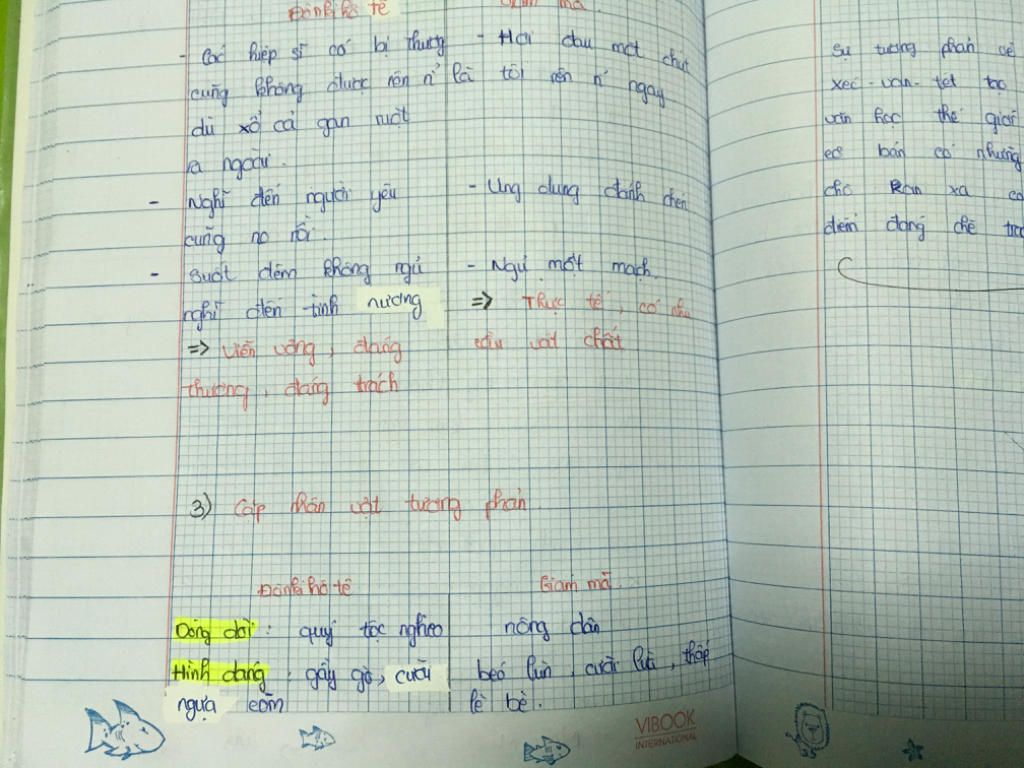 Đônkihôtê
- Các hiệp sĩ có bị thương - Hơi đau một chút
cũng không được rên rỉ là tôi rên rỉ ngay
dù xổ cả gan ruột
ra ngoài.
- Nghĩ đến người yêu - Ung dung đánh chén
cũng no rồi.
- Suốt đêm không ngủ - Ngủ một mạch.
nghĩ đến tình nương => Thực tế, có nhu
=> Viển vông, đáng cầu vật chất
thương, đáng trách
3) Cặp nhân vật tương phản
Đônkihôtê Giám mã
Dòng dõi: quý tộc nghèo nông dân
Hình dáng: gầy gò, cưỡi béo lùn, cưỡi lừa, thấp
ngựa còm lè bè.
VIBOOK
INTERNATIONAL
Sự tương phản về
xec-van-tet tạo
văn học thế giới
cơ bản có những
cho Xan xa có
điểm đáng chê trá